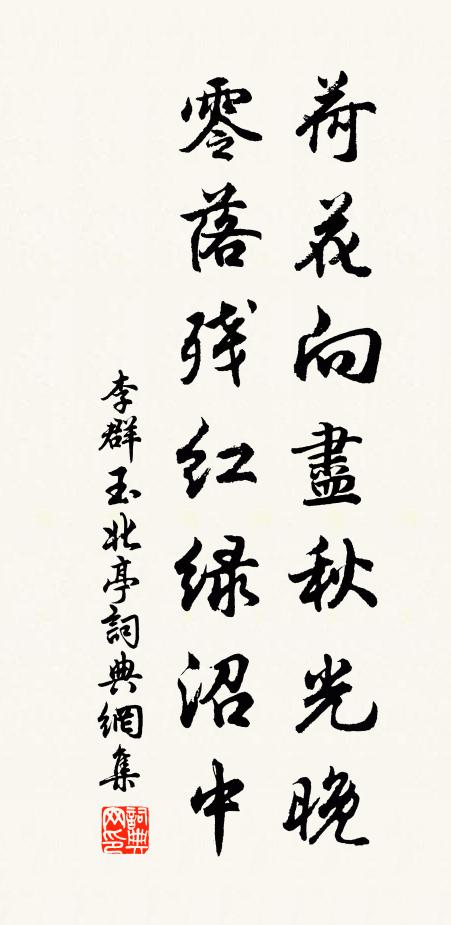 荷花向盡秋光晚
零落殘紅緑沼中
李群玉北亭詞典網集
詞典網印